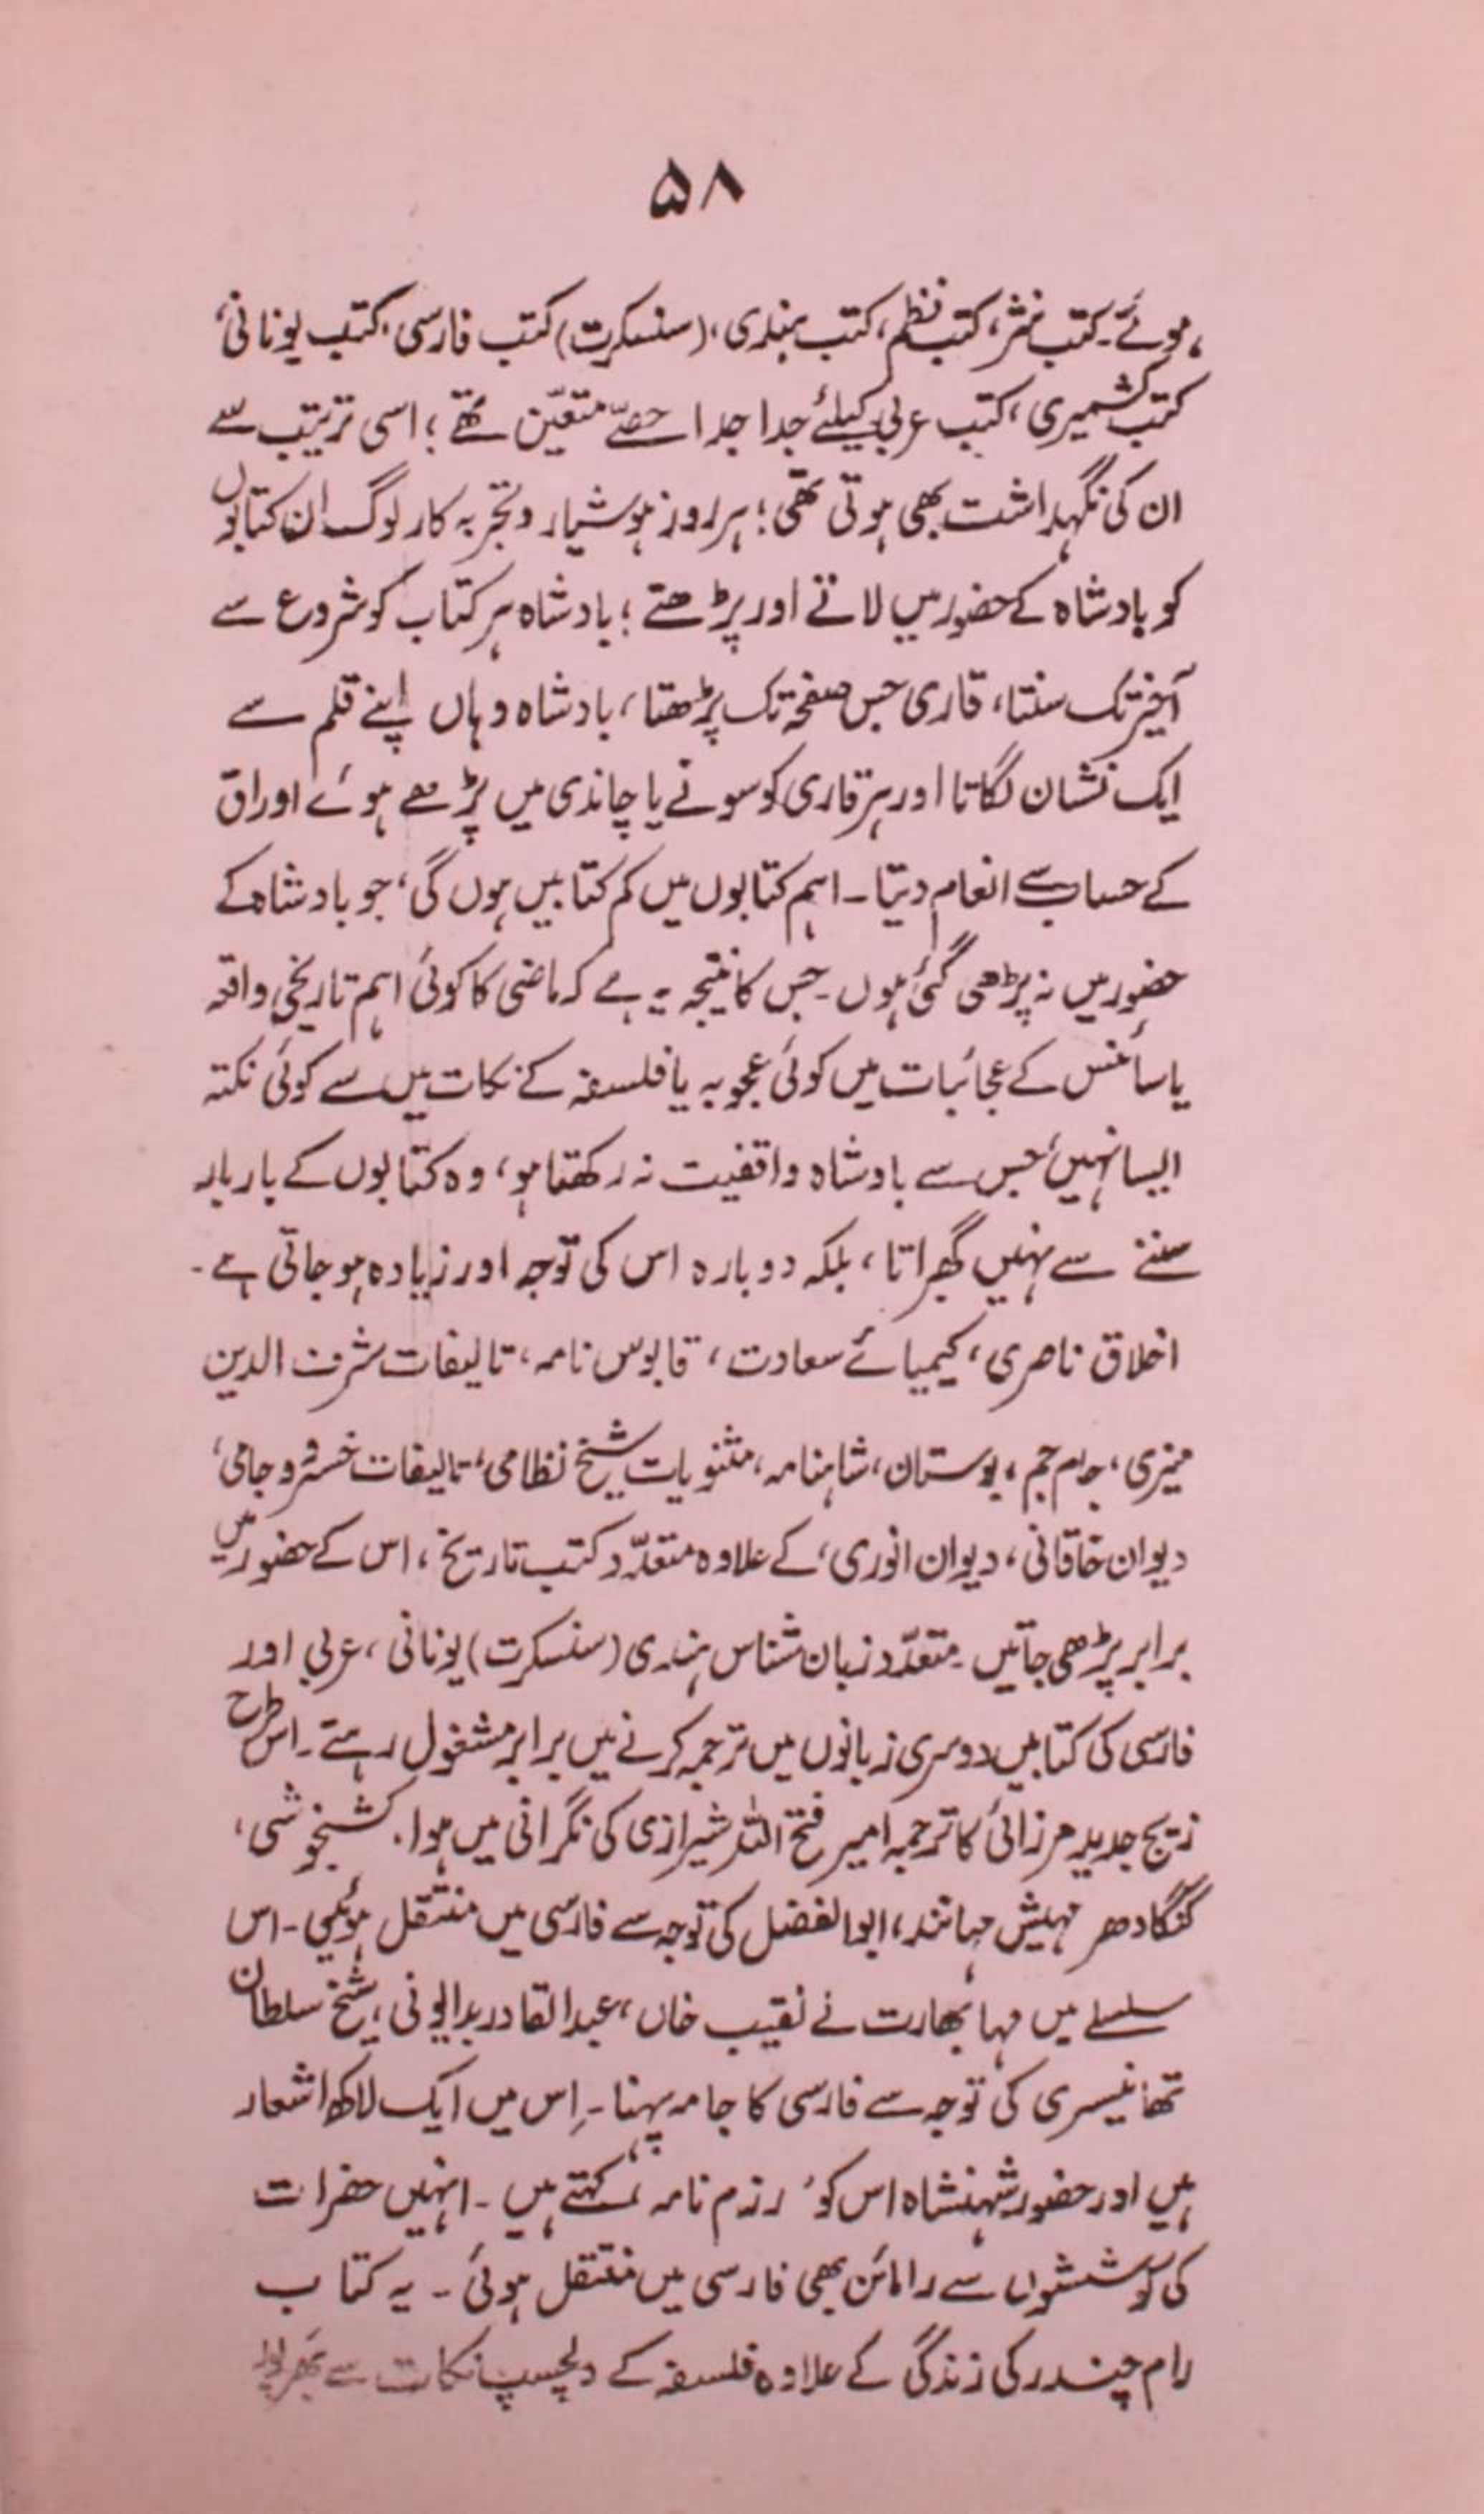 ۵۸
ہوئے۔ کتب نثر، کتب نظم، کتب ہندی، (سنسکرت) کتب فارسی، کتب یونانی،
کتب کشمیری، کتب عربی کیلئے جدا جدا حصّے متعیّن تھے؛ اسی ترتیب سے
ان کی نگہداشت بھی ہوتی تھی؛ ہر روز ہوشیار و تجربہ کار لوگ ان کتابوں
کو بادشاہ کے حضور میں لاتے اور پڑھتے؛ بادشاہ ہر کتاب کو شروع سے
آخر تک سنتا، قاری جس صفحہ تک پڑھتا، بادشاہ وہاں اپنے قلم سے
ایک نشان لگاتا اور ہر قاری کو سونے یا چاندی میں پڑھے ہوئے اوراق
کے حساب سے انعام دیتا۔ اہم کتابوں میں کم کتابیں ہوں گی، جو بادشاہ کے
حضور میں نہ پڑھی گئی ہوں۔ جس کا نتیجہ یہ ہے کہ ماضی کا کوئی اہم تاریخی واقعہ
یا سائنس کے عجائبات میں کوئی عجوبہ یا فلسفہ کے نکات میں سے کوئی نکتہ
ایسا نہیں، جس سے بادشاہ واقفیت نہ رکھتا ہو، وہ کتابوں کے بار بار
سننے سے نہیں گھبراتا، بلکہ دوبارہ اس کی توجہ اور زیادہ ہو جاتی ہے۔
اخلاق ناصری، کیمیائے سعادت، قابوس نامہ، تالیفات شرف الدین
منیری، جام جم، بوستان، شاہنامہ، مثنویات شیخ نظامی، تالیفات خسرو و جامی،
دیوان خاقانی، دیوان انوری، کے علاوہ متعدّد کتب تاریخ، اس کے حضور میں
برابر پڑھی جاتیں۔ متعدّد زبان شناس ہندی (سنسکرت) یونانی، عربی اور
فارسی کی کتابیں دوسری زبانوں میں ترجمہ کرنے میں برابر مشغول رہتے۔ اس طرح
زیج جدید مرزائی کا ترجمہ امیر فتح اللہ شیرازی کی نگرانی میں ہوا۔ کشنجوشی،
گنگادھر مہیش مہانند، ابوالفضل کی توجہ سے فارسی میں منتقل ہوئیں۔ اس
سلسلے میں مہا بھارت نے نقیب خاں، عبدالقادر بدایونی، شیخ سلطان
تھانیسری کی توجہ سے فارسی کا جامہ پہنا۔ اِس میں ایک لاکھ اشعار
ہیں اور حضور شہنشاہ اس کو ’رزم نامہ‘ کہتے ہیں۔ انہیں حضرات
کی کوششوں سے رامائن بھی فارسی میں منتقل ہوئی۔ یہ کتاب
رام چندر کی زندگی کے علاوہ فلسفہ کے دلچسپ نکات سے بھرپور